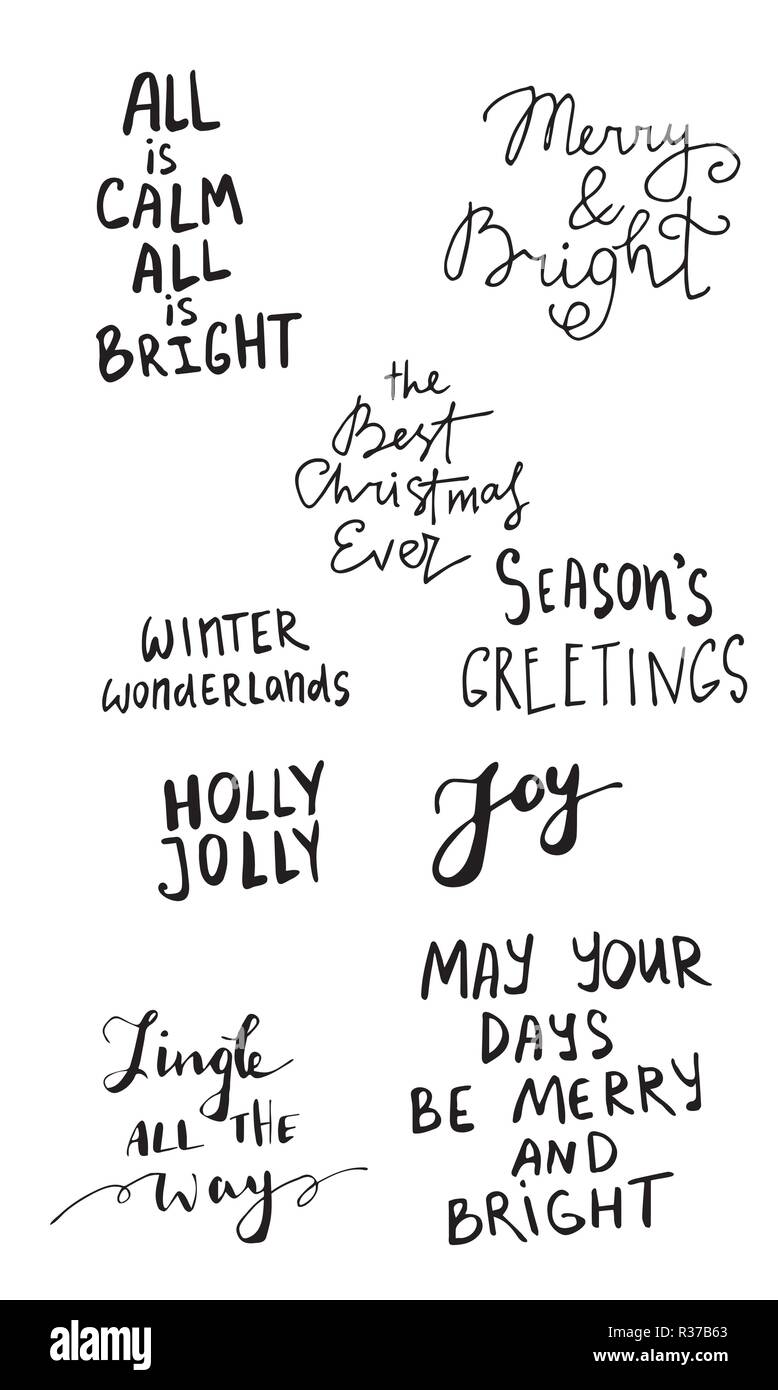 ALL
is
CALM
ALL
is
BRIGHT
Merry
&
Bright
the
Best
Christmas
Ever
SEASON'S
GREETINGS
WINTER
WONDERLANDS
HOLLY
JOLLY
Joy
MAY YOUR
DAYS
BE MERRY
AND
BRIGHT
Jingle
ALL THE
Way
alamy
Image ID: R37B63
www.alamy.com